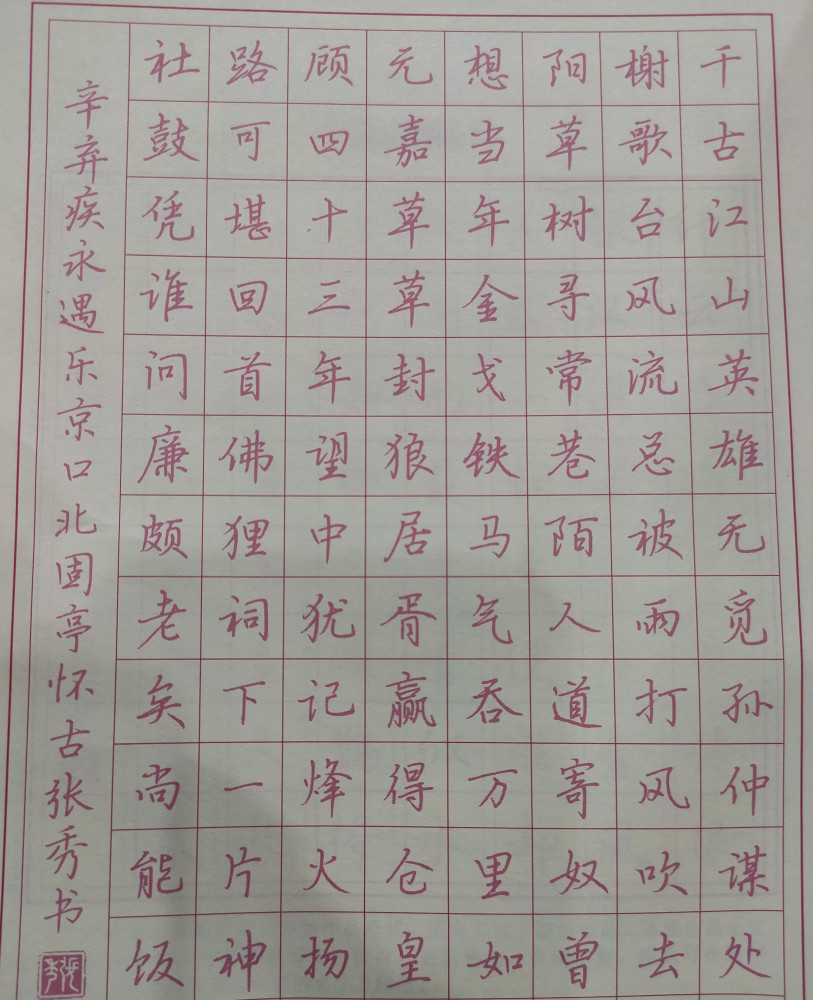 千古江山英雄无觅孙仲谋处
榭歌台风流总被雨打风吹去
阳草树寻常巷陌人道寄奴曾
想当年金戈铁马气吞万里如
元嘉草草封狼居胥赢得仓皇
顾四十三年望中犹记烽火扬
路可堪回首佛狸祠下一片神
社鼓凭谁问廉颇老矣尚能饭
辛弃疾永遇乐京口北固亭怀古张秀书